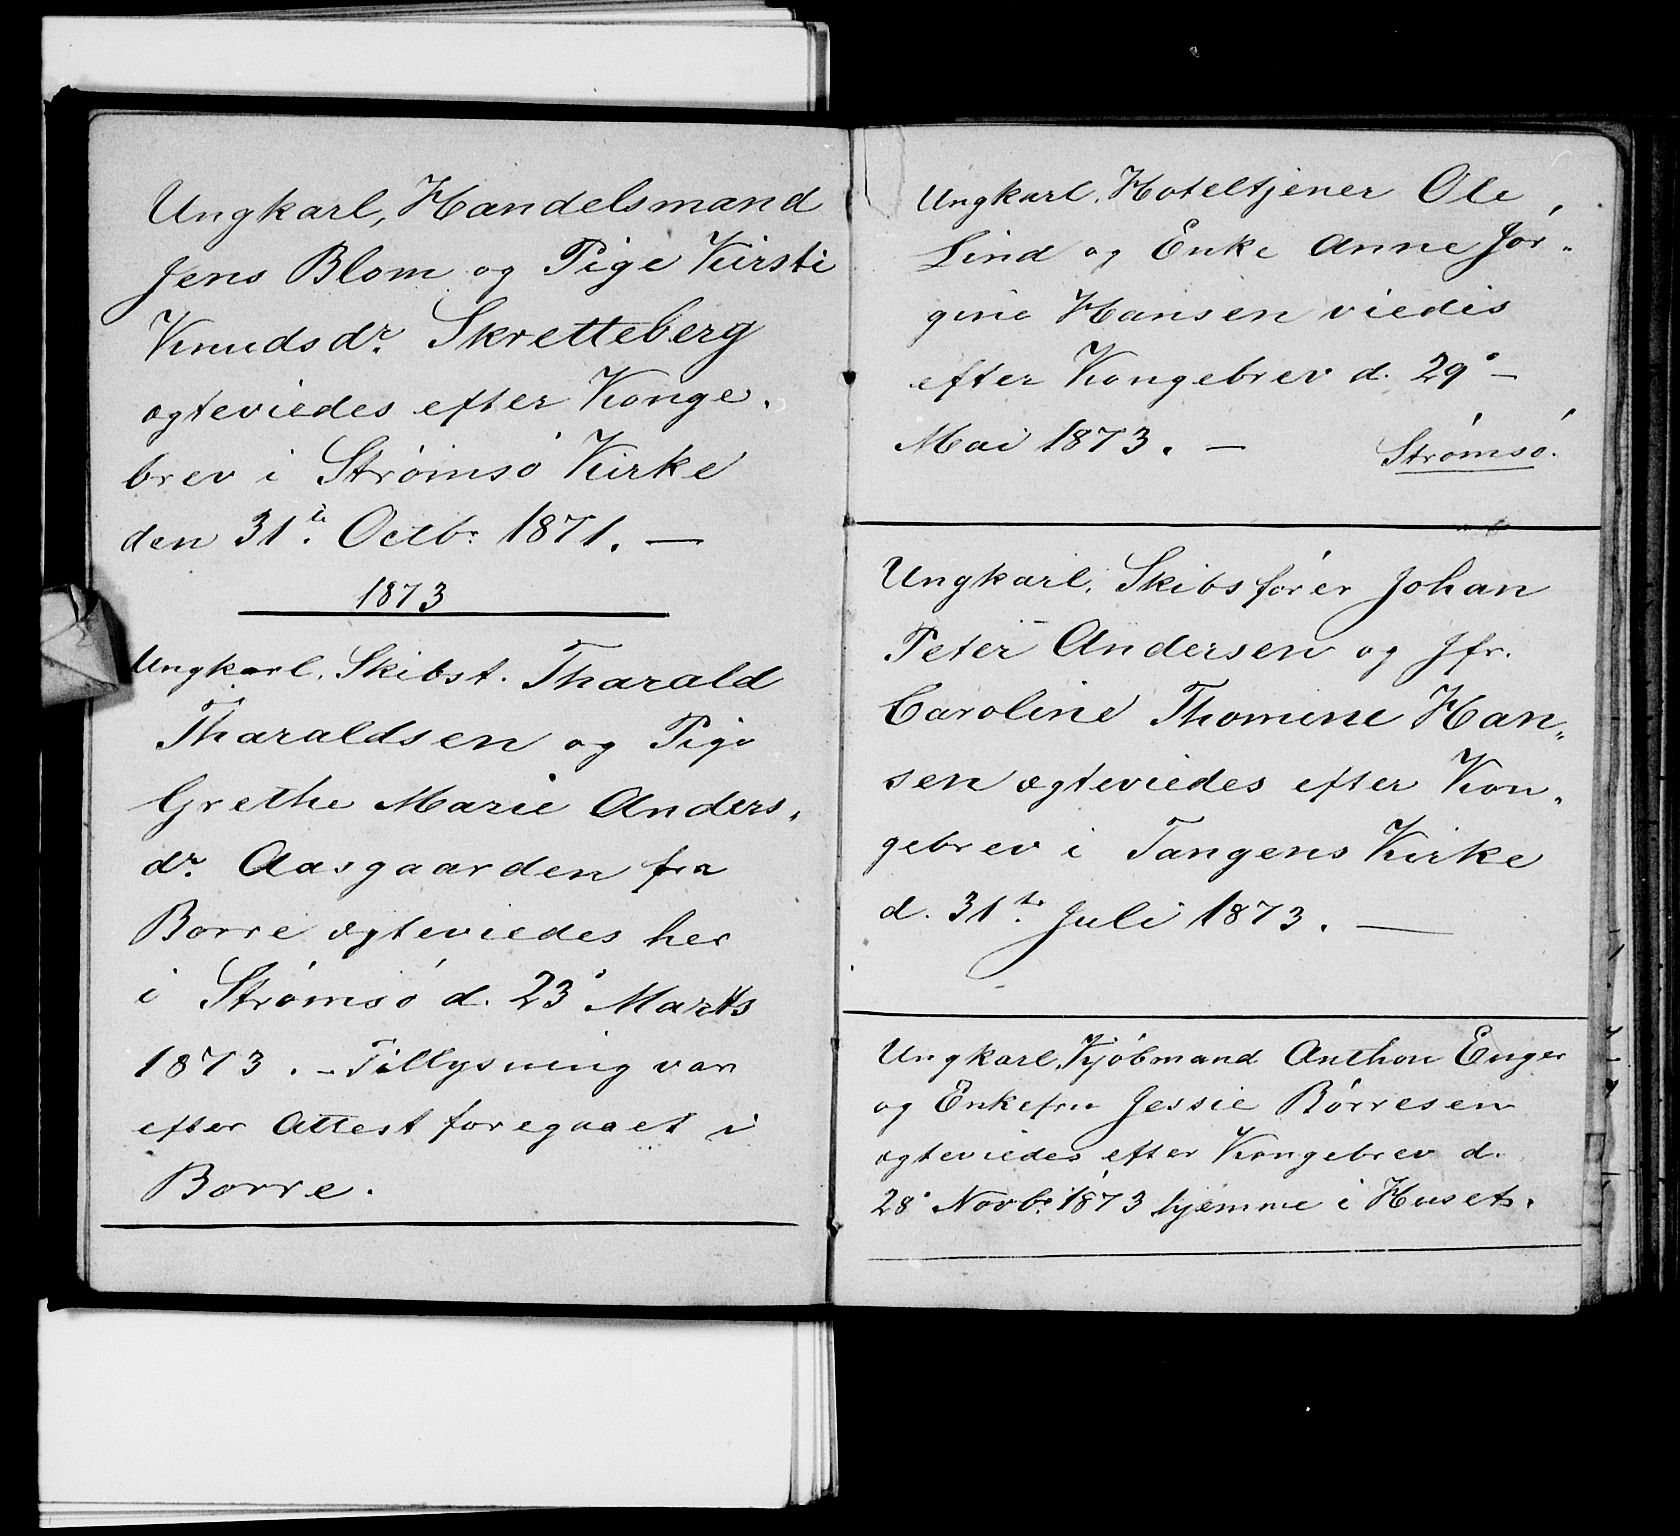 Ungkarl, Handelsmand
Jens Blom og Pige Kirsti
Knudsdr. Skretteberg
ægteviedes efter Konge-
brev i Strømsø Kirke
den 31te Octbr 1871. —
1873
Ungkarl, Skibst. Tharald
Tharaldsen og Pige
Grethe Marie Anders-
dr. Aasgaarden fra
Borre ægteviedes her
i Strømsø d. 23' Marts
1873. – Tillysning var
efter Attest foregaaet i
Borre.
Ungkarl, Hoteltjener Ole
Lind og Enke Anne Jør-
gine Hansen viedes
efter Kongebrev d. 29' –
Mai 1873. – Strømsø.
Ungkarl, Skibsfører Johan
Peter Andersen og Jfr.
Caroline Thomine Han-
sen ægteviedes efter Kon-
gebrev i Tangens Kirke
d. 31te Juli 1873. —
Ungkarl, Kjøbmand Anthon Enger
og Enkefru Jessie Børresen
ægteviedes efter Kongebrev d.
28' Novbr 1873 hjemme i Huset.